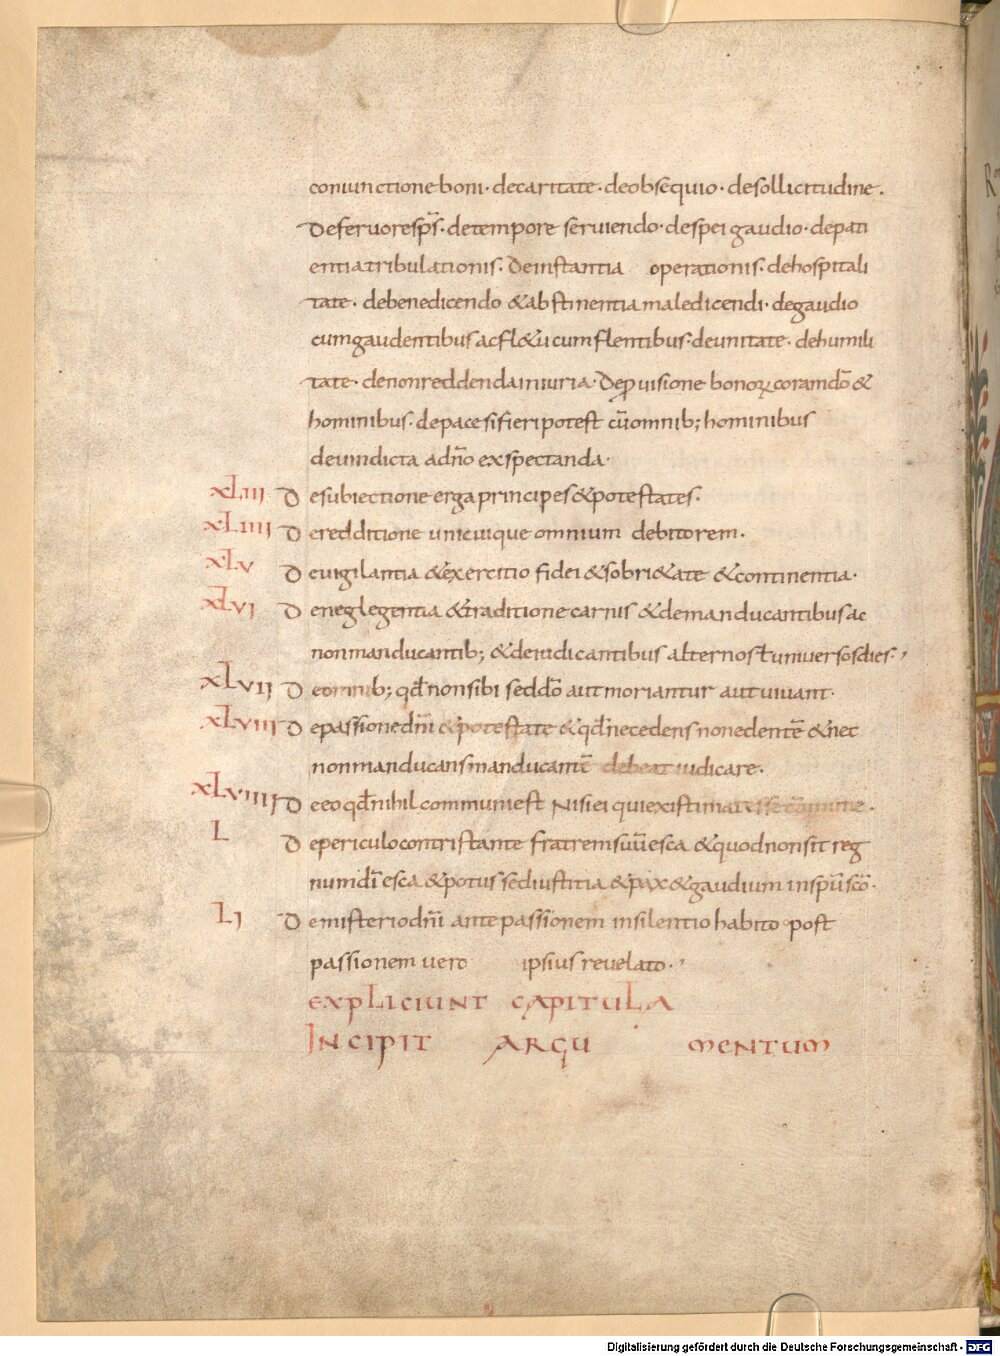 coniunctione boni · de caritate · de obsequio · de sollicitudine ·
De feruore sp̄s · de tempore seruiendo · de spei gaudio · de pati
entia tribulationis · De instantia operationis · de hospitali
tate · de benedicendo & abstinentia maledicendi · de gaudio
cum gaudentibus ac fl&u cum flentibus · de unitate · de humili
tate · de non reddenda iniuria · De ꝓuisione bonoꝝ coram dō &
hominibus · de pace si fieri potest cū omnib; hominibus
de uindicta ad dn̄o exspectanda ·
XLIII De subiectione erga principes & potestates ·
XLIIII De redditione unicuique omnium debitorem ·
XLV De uigilantia & exercitio fidei & sobri&ate & continentia ·
XLVI De neglegentia & traditione carnis & de manducantibus ac
non manducantib; & de iudicantibus alternos ł uniuersos dies ·,
XLVII De omnib; qđ non sibi sed dō aut moriantur aut uiuant ·
XLVIII De passione dn̄i & potestate & qđ nec edens non edentē & nec
non manducans manducantē debeat iudicare ·
XLVIIII De eo qđ nihil commun est Nisi ei qui existimat esse cōmune ·
L De periculo contristante fratrem suū esca & quod non sit reg
num dī esca & potus sed iustitia & pax & gaudium in sp̄u sc̄o ·
LI De misterio dn̄i ante passionem in silentio habito post
passionem uero ipsius reuelato ·,
EXPLICIUNT CAPITULA
INCIPIT ARGUMENTUM
Digitalisierung gefördert durch die Deutsche Forschungsgemeinschaft - DFG